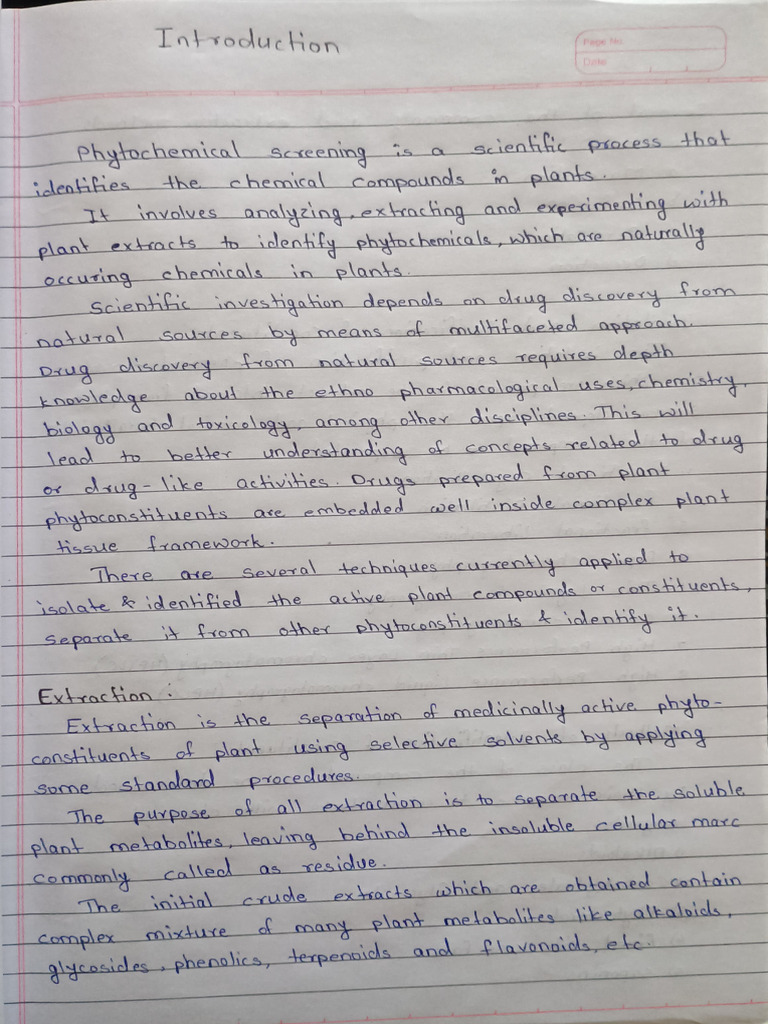 Introduction
Page No.
Date
Phytochemical screening is a scientific process that
identifies the chemical compounds in plants.
It involves analyzing, extracting and experimenting with
plant extracts to identify phytochemicals, which are naturally
occuring chemicals in plants.
Scientific investigation depends on drug discovery from
natural sources by means of multifaceted approach.
Drug discovery from natural sources requires depth
knowledge about the ethno pharmacological uses, chemistry,
biology and toxicology, among other disciplines. This will
lead to better understanding of concepts related to drug
or drug-like activities. Drugs prepared from plant
phytoconstituents are embedded well inside complex plant
tissue framework.
There are several techniques currently applied to
isolate & identified the active plant compounds or constituents,
separate it from other phytoconstituents & identify it.
Extraction :
Extraction is the separation of medicinally active phyto-
constituents of plant using selective solvents by applying
some standard procedures.
The purpose of all extraction is to separate the soluble
plant metabolites, leaving behind the insoluble cellular marc
commonly called as residue.
The initial crude extracts which are obtained contain
complex mixture of many plant metabolites like alkaloids,
glycosides, phenolics, terpenoids and flavonoids, etc.